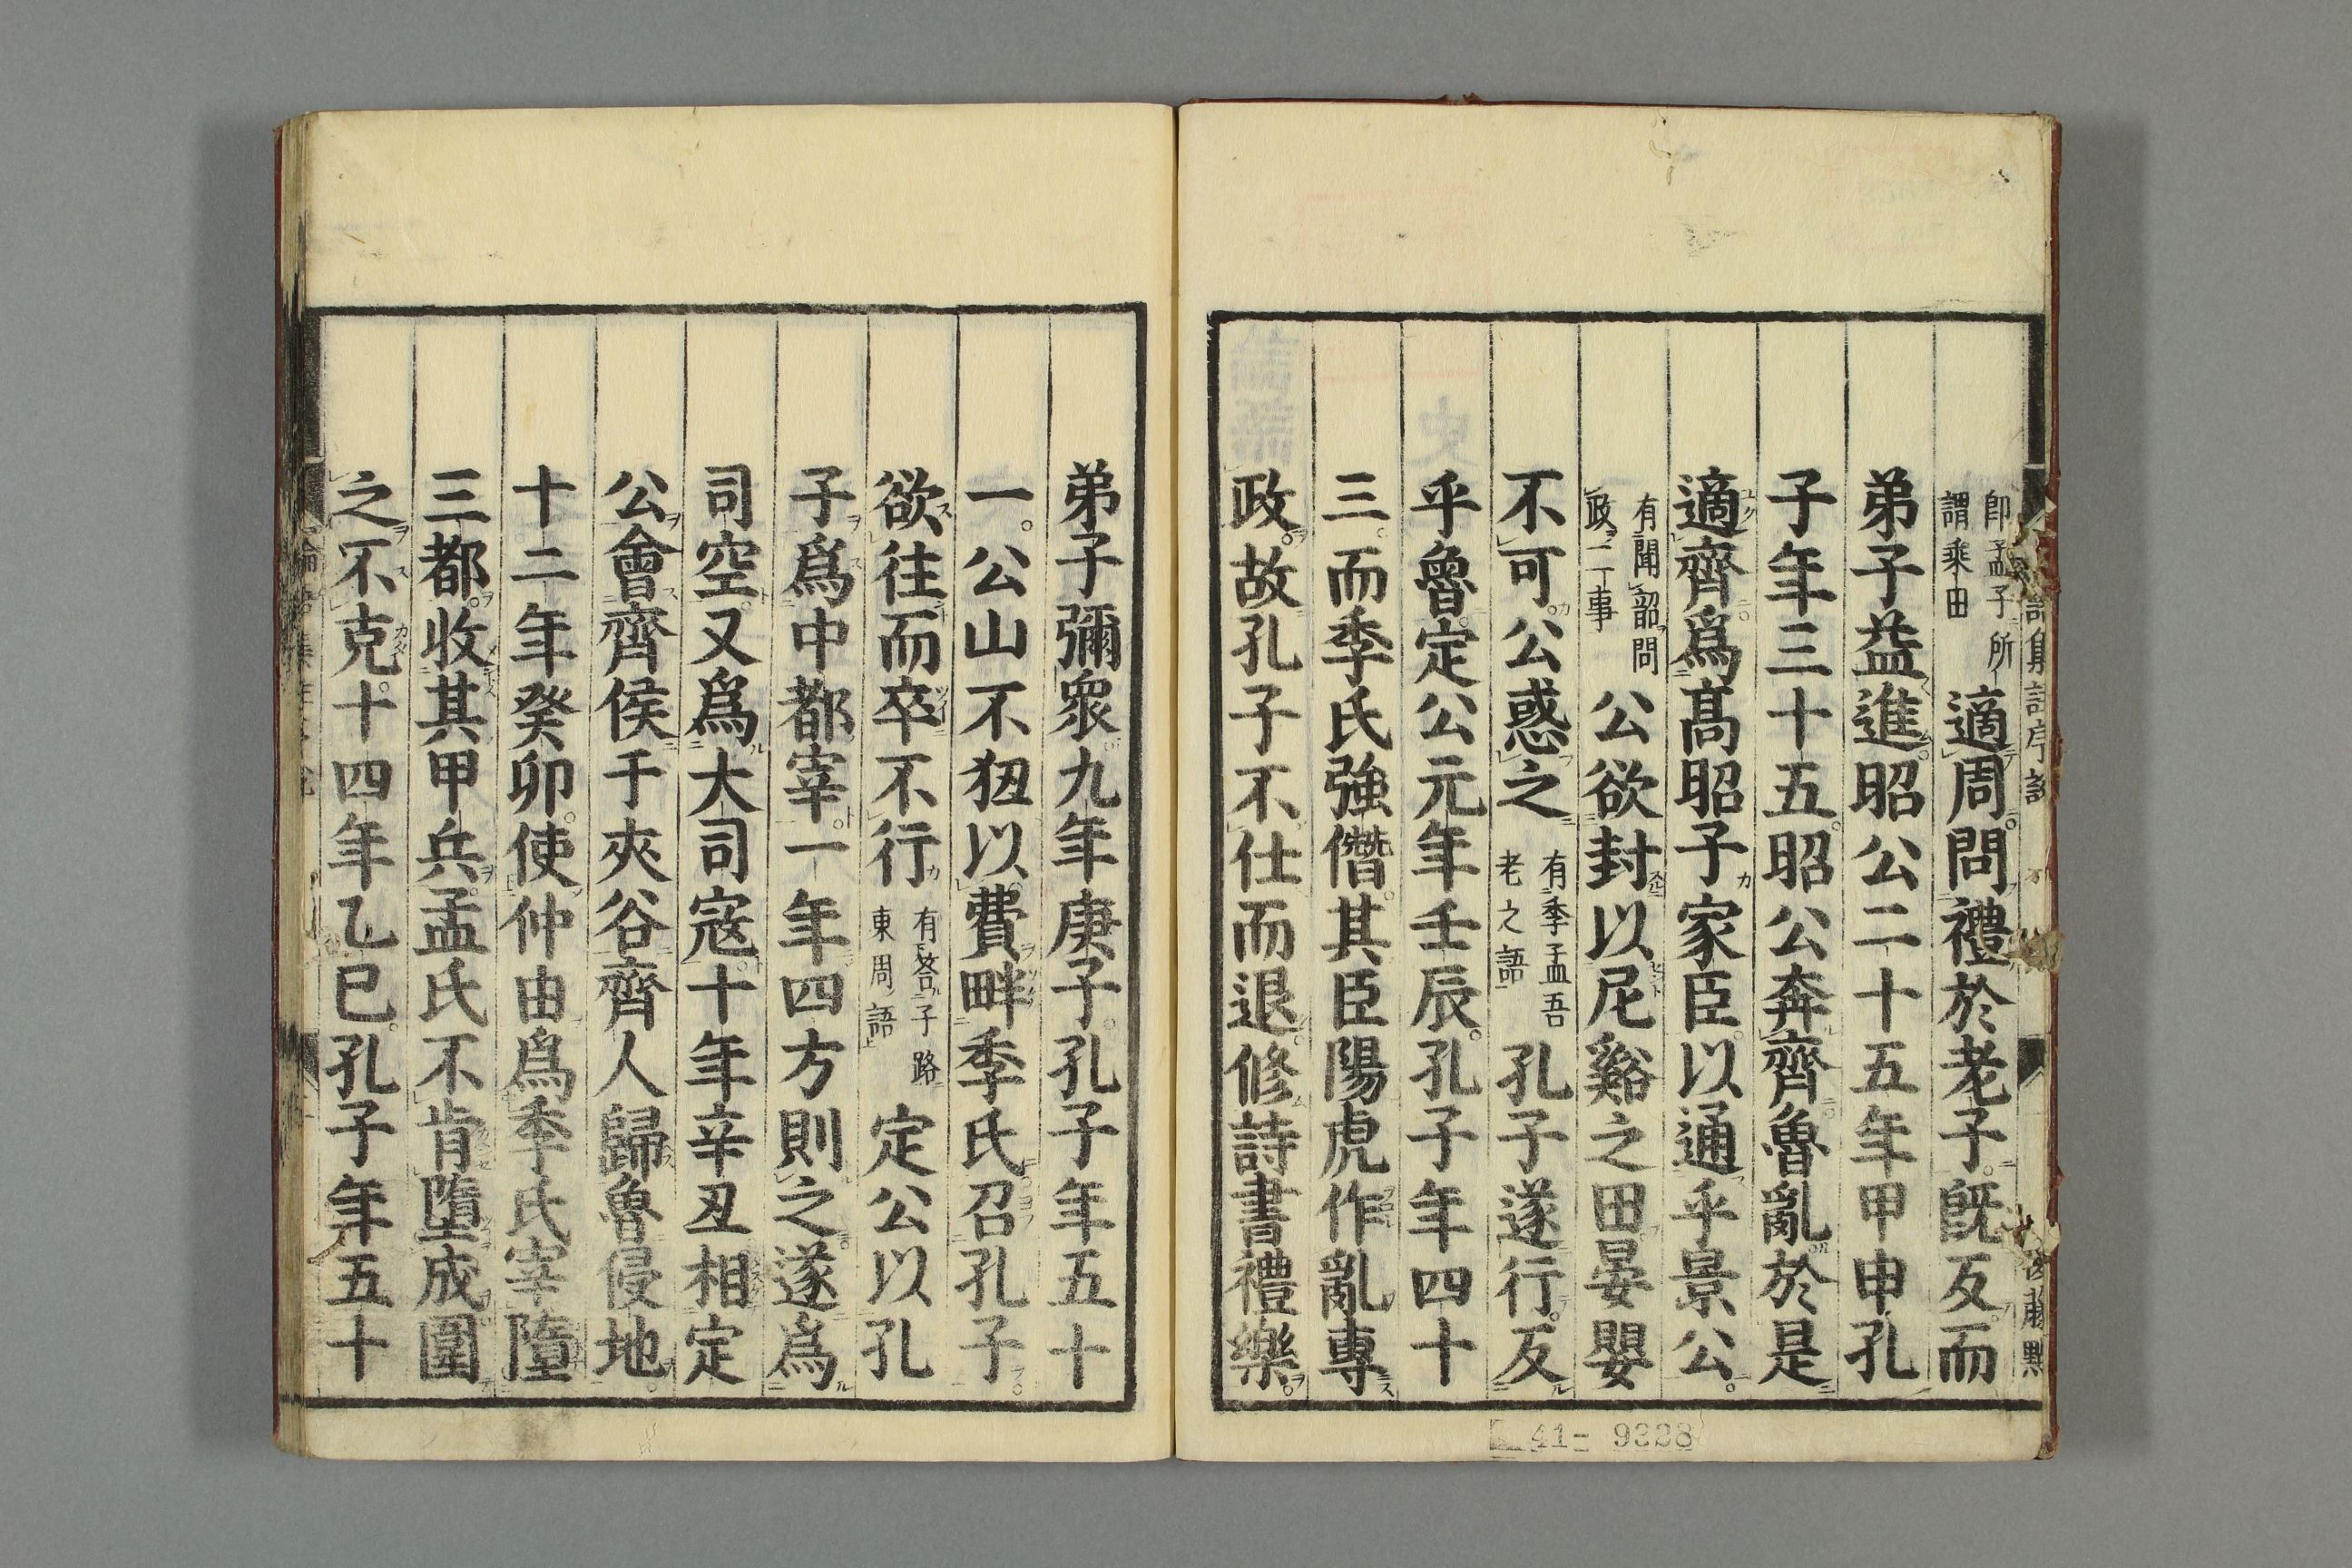 即孟子所謂乘田適周問禮於老子既反而
弟子益進昭公二十五年甲申孔
子年三十五昭公奔齊魯亂於是
適齊爲髙昭子家臣以通乎景公
有聞韶問政二事公欲封以尼谿之田晏嬰
不可公惑之有季孟吾老之語孔子遂行反
乎魯定公元年壬辰孔子年四十
三而季氏強僭其臣陽虎作亂專
政故孔子不仕而退修詩書禮樂
弟子彌衆九年庚子孔子年五十
一公山不狃以費畔季氏召孔子
欲往而卒不行有荅子路東周語定公以孔
子爲中都宰一年四方則之遂爲
司空又爲大司寇十年辛丑相定
公會齊侯于夾谷齊人歸魯侵地
十二年癸卯使仲由爲季氏宰墮
三都收其甲兵孟氏不肯墮成圍
之不克十四年乙巳孔子年五十
41- 9328